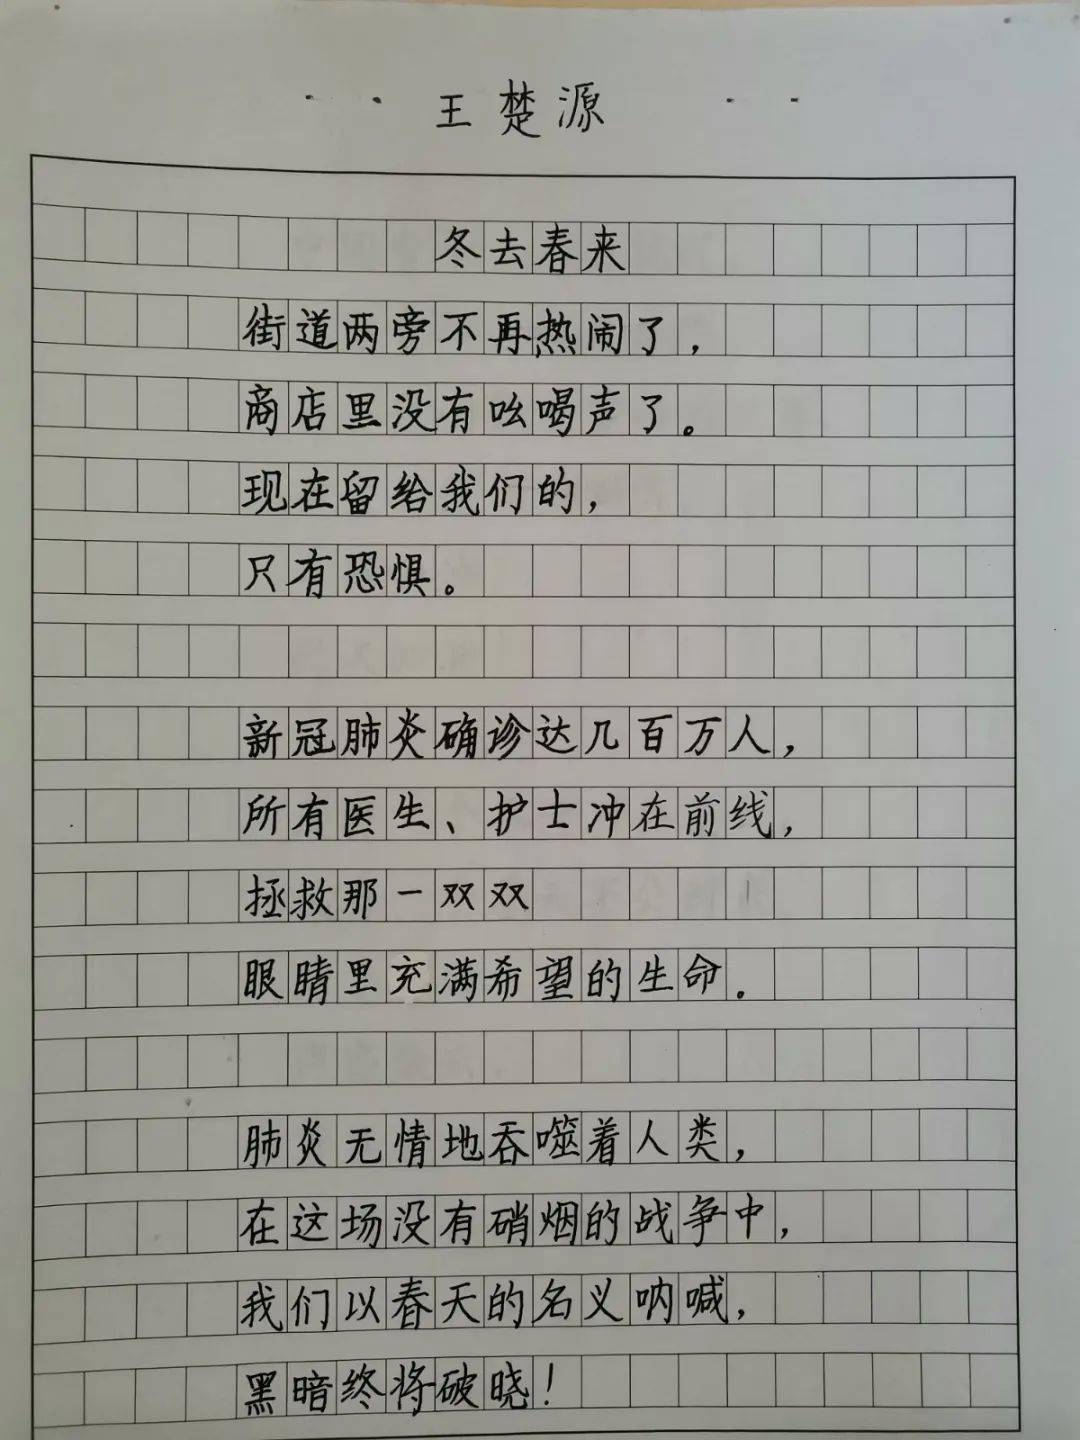 王楚源
冬去春来
街道两旁不再热闹了，
商店里没有吆喝声了。
现在留给我们的，
只有恐惧。
新冠肺炎确诊达几百万人，
所有医生、护士冲在前线，
拯救那一双双
眼睛里充满希望的生命.
肺炎无情地吞噬着人类，
在这场没有硝烟的战争中，
我们以春天的名义呐喊，
黑暗终将破晓！